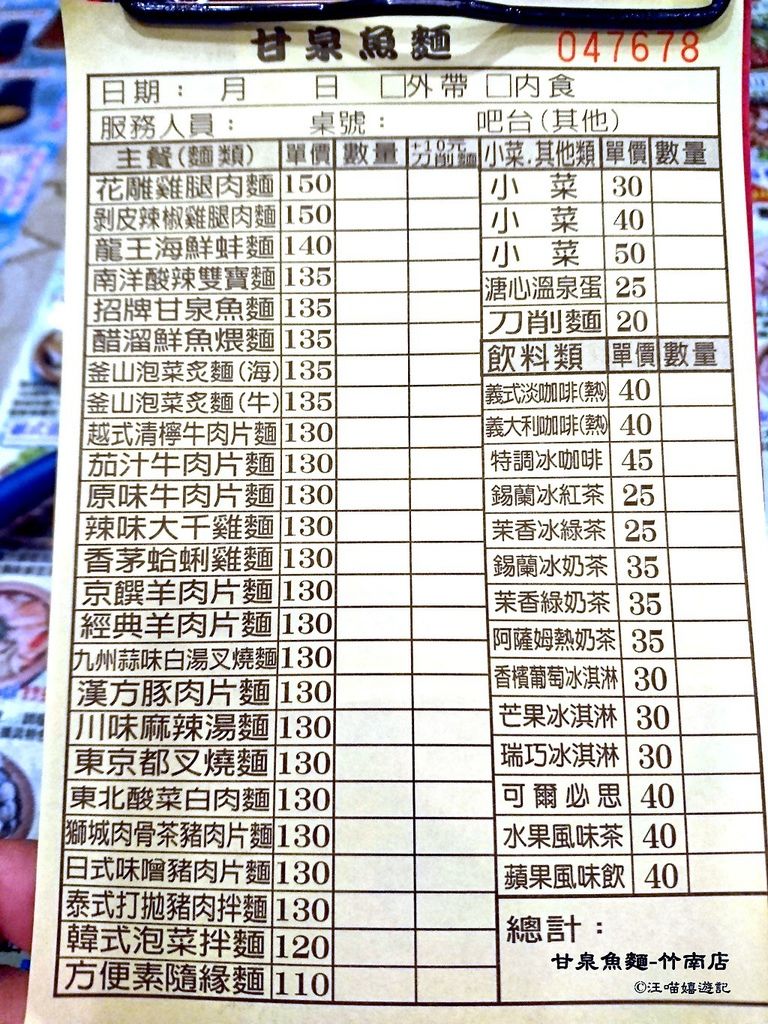 甘泉魚麵 047678
日期： 月 日 □外帶 □內食
服務人員： 桌號： 吧台(其他)
主餐(麵類) 單價 數量 +10元刀削麵
花雕雞腿肉麵 150
剝皮辣椒雞腿肉麵 150
龍王海鮮蚌麵 140
南洋酸辣雙寶麵 135
招牌甘泉魚麵 135
醋溜鮮魚煨麵 135
釜山泡菜炙麵(海) 135
釜山泡菜炙麵(牛) 135
越式清檸牛肉片麵 130
茄汁牛肉片麵 130
原味牛肉片麵 130
辣味大千雞麵 130
香茅蛤蜊雞麵 130
京饌羊肉片麵 130
經典羊肉片麵 130
九州蒜味白湯叉燒麵 130
漢方豚肉片麵 130
川味麻辣湯麵 130
東京都叉燒麵 130
東北酸菜白肉麵 130
獅城肉骨茶豬肉片麵 130
日式味噌豬肉片麵 130
泰式打拋豬肉拌麵 130
韓式泡菜拌麵 120
方便素隨緣麵 110
小菜.其他類 單價 數量
小 菜 30
小 菜 40
小 菜 50
溏心溫泉蛋 25
刀削麵 20
飲料類 單價 數量
義式淡咖啡(熱) 40
義大利咖啡(熱) 40
特調冰咖啡 45
錫蘭冰紅茶 25
茉香冰綠茶 25
錫蘭冰奶茶 35
茉香綠奶茶 35
阿薩姆熱奶茶 35
香檳葡萄冰淇淋 30
芒果冰淇淋 30
瑞巧冰淇淋 30
可爾必思 40
水果風味茶 40
蘋果風味飲 40
總計：
甘泉魚麵-竹南店
©汪喵嬉遊記